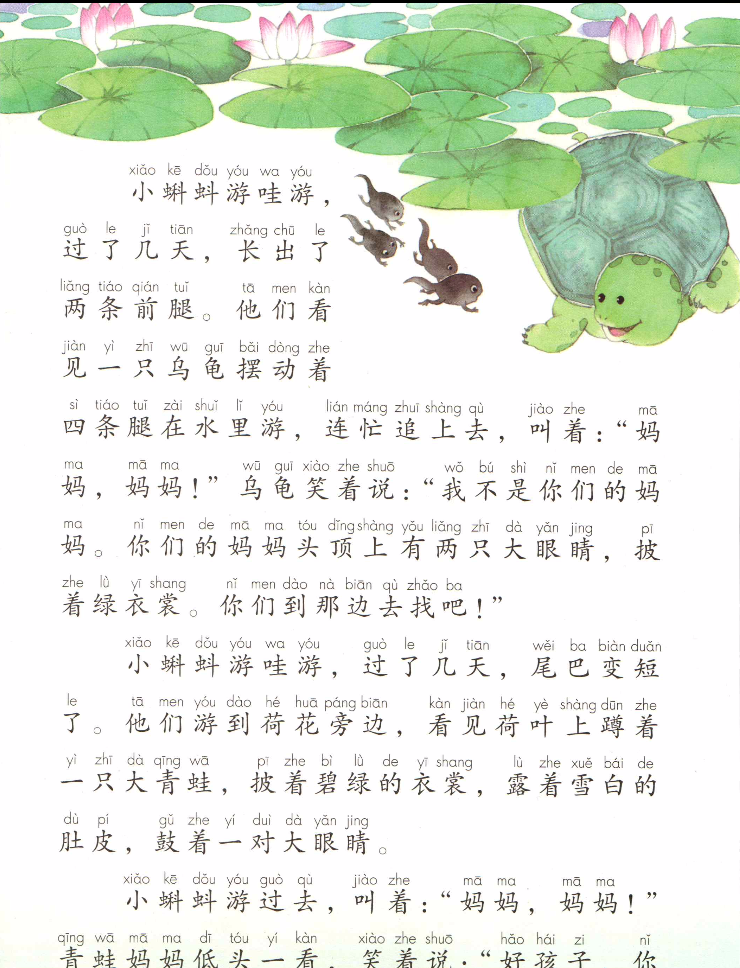 xiǎo kē dǒu yóu wa yóu
小蝌蚪游哇游，
guò le jǐ tiān zhǎng chū le
过了几天，长出了
liǎng tiáo qián tuǐ tā men kàn
两条前腿。他们看
jiàn yì zhī wū guī bǎi dòng zhe
见一只乌龟摆动着
sì tiáo tuǐ zài shuǐ lǐ yóu lián máng zhuī shàng qù jiào zhe mā
四条腿在水里游，连忙追上去，叫着：“妈
ma mā ma wū guī xiào zhe shuō wǒ bú shì nǐ men de mā
妈，妈妈！”乌龟笑着说：“我不是你们的妈
ma nǐ men de mā ma tóu dǐng shàng yǒu liǎng zhī dà yǎn jing pī
妈。你们的妈妈头顶上有两只大眼睛，披
zhe lǜ yī shang nǐ men dào nà biān qù zhǎo ba
着绿衣裳。你们到那边去找吧！”
xiǎo kē dǒu yóu wa yóu guò le jǐ tiān wěi ba biàn duǎn
小蝌蚪游哇游，过了几天，尾巴变短
le tā men yóu dào hé huā páng biān kàn jiàn hé yè shàng dūn zhe
了。他们游到荷花旁边，看见荷叶上蹲着
yì zhī dà qīng wā pī zhe bì lǜ de yī shang lù zhe xuě bái de
一只大青蛙，披着碧绿的衣裳，露着雪白的
dù pí gǔ zhe yí duì dà yǎn jing
肚皮，鼓着一对大眼睛。
xiǎo kē dǒu yóu guò qù jiào zhe mā ma mā ma
小蝌蚪游过去，叫着：“妈妈，妈妈！”
qīng wā mā ma dī tóu yí kàn xiào zhe shuō hǎo hái zi nǐ
青蛙妈妈低头一看，笑着说：“好孩子，你